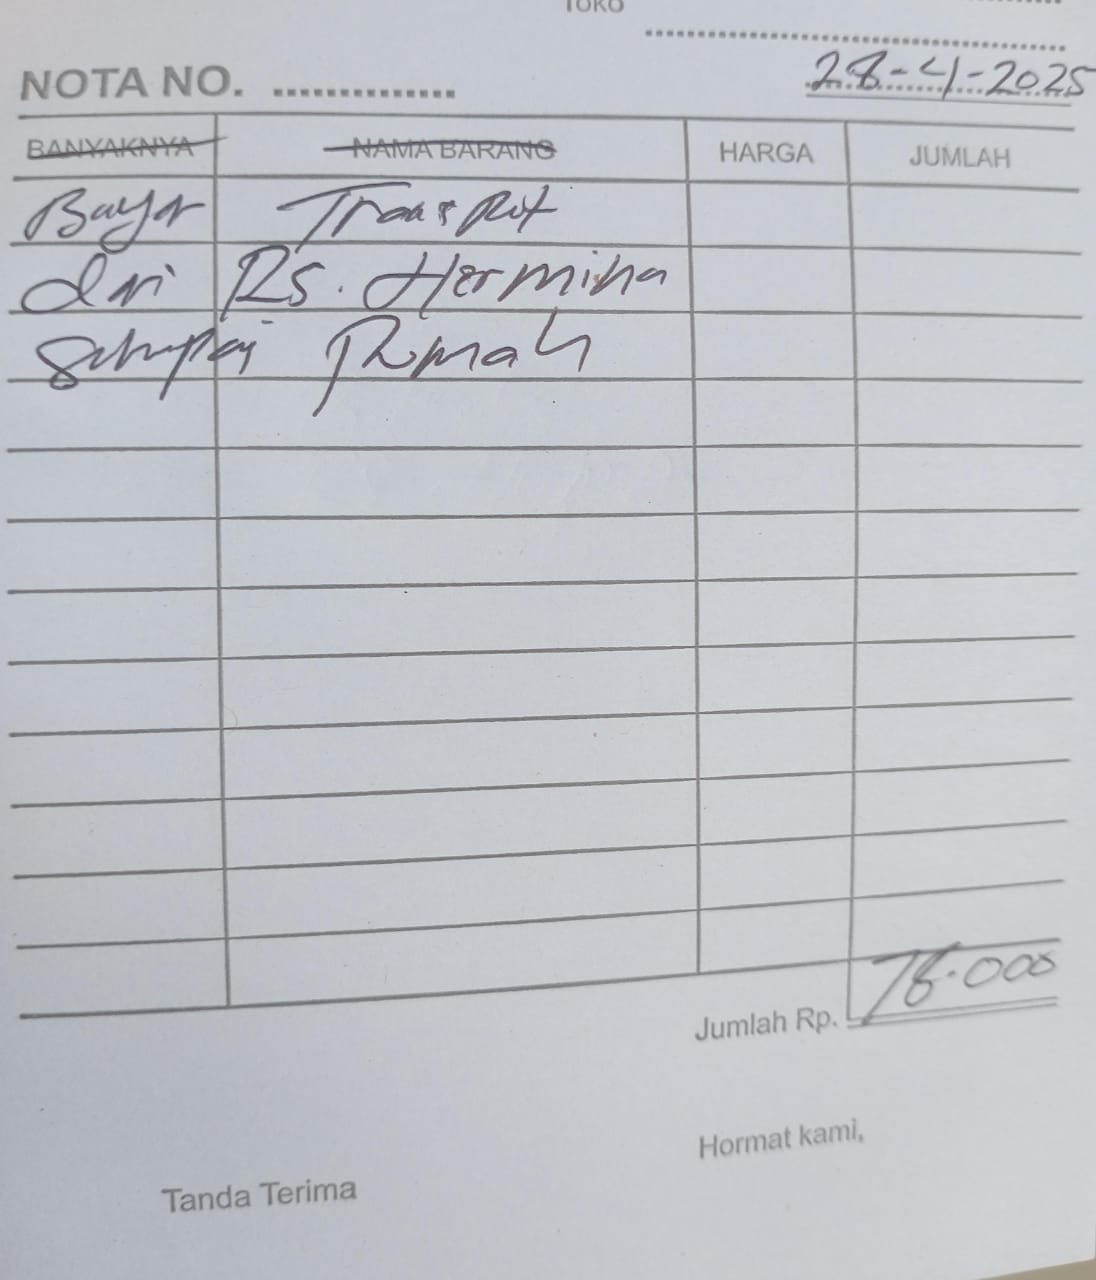 TOKO
28-4-2025
NOTA NO.
BANYAKNYA NAMA BARANG HARGA JUMLAH
Bayar Transport
dari RS. Hermina
Sampai Rumah
Jumlah Rp. 78.000
Hormat kami,
Tanda Terima